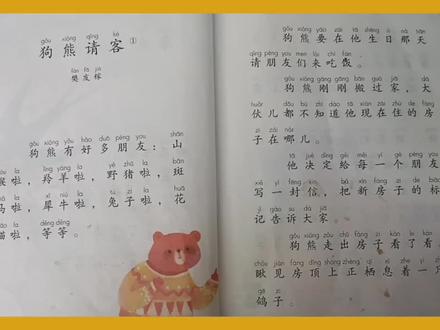 gǒu xióng qǐng kè
狗熊请客①
fán fā jià
樊发稼
gǒu xióng yǒu hǎo duō péng you shān
狗熊有好多朋友：山
la líng yáng la yě zhū la bān
猴啦，羚羊啦，野猪啦，斑
la xī niú la tù zi la huā
马啦，犀牛啦，兔子啦，花
la děng děng
猫啦，等等。
gǒu xióng yào zài tā shēng rì nà tiān
狗熊要在他生日那天
qǐng péng you men lái chī fàn
请朋友们来吃饭。
gǒu xióng gāng gāng bān guò jiā dà
狗熊刚刚搬过家，大
huǒr dōu bù zhī dào tā xiàn zài zhù de fáng
伙儿都不知道他现在住的房
zi zài nǎr
子在哪儿。
tā jué dìng gěi měi yí gè péng you
他决定给每一个朋友
xiě yì fēng xìn bǎ xīn fáng zi de biāo
写一封信，把新房子的标
jì gào sù dà jiā
记告诉大家
gǒu xióng zǒu chū fáng zi kàn le kàn
狗熊走出房子看了看
chǒu jiàn fáng dǐng shàng zhèng qī xī zhe yì zhī
瞅见房顶上正栖息着一只
gē zi
鸽子。